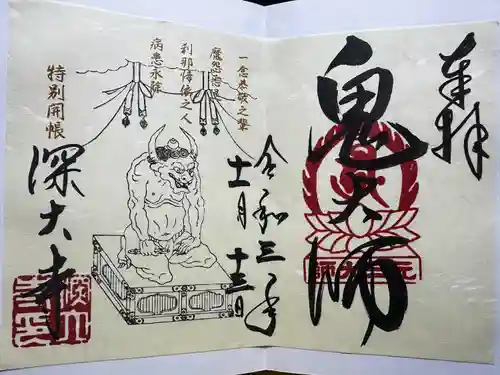 奉拝
鬼大師
令和三年
十一月十三日
一念恭敬之輩
魔怨
刹那帰依之人
病患永除
特別開帳
深大寺